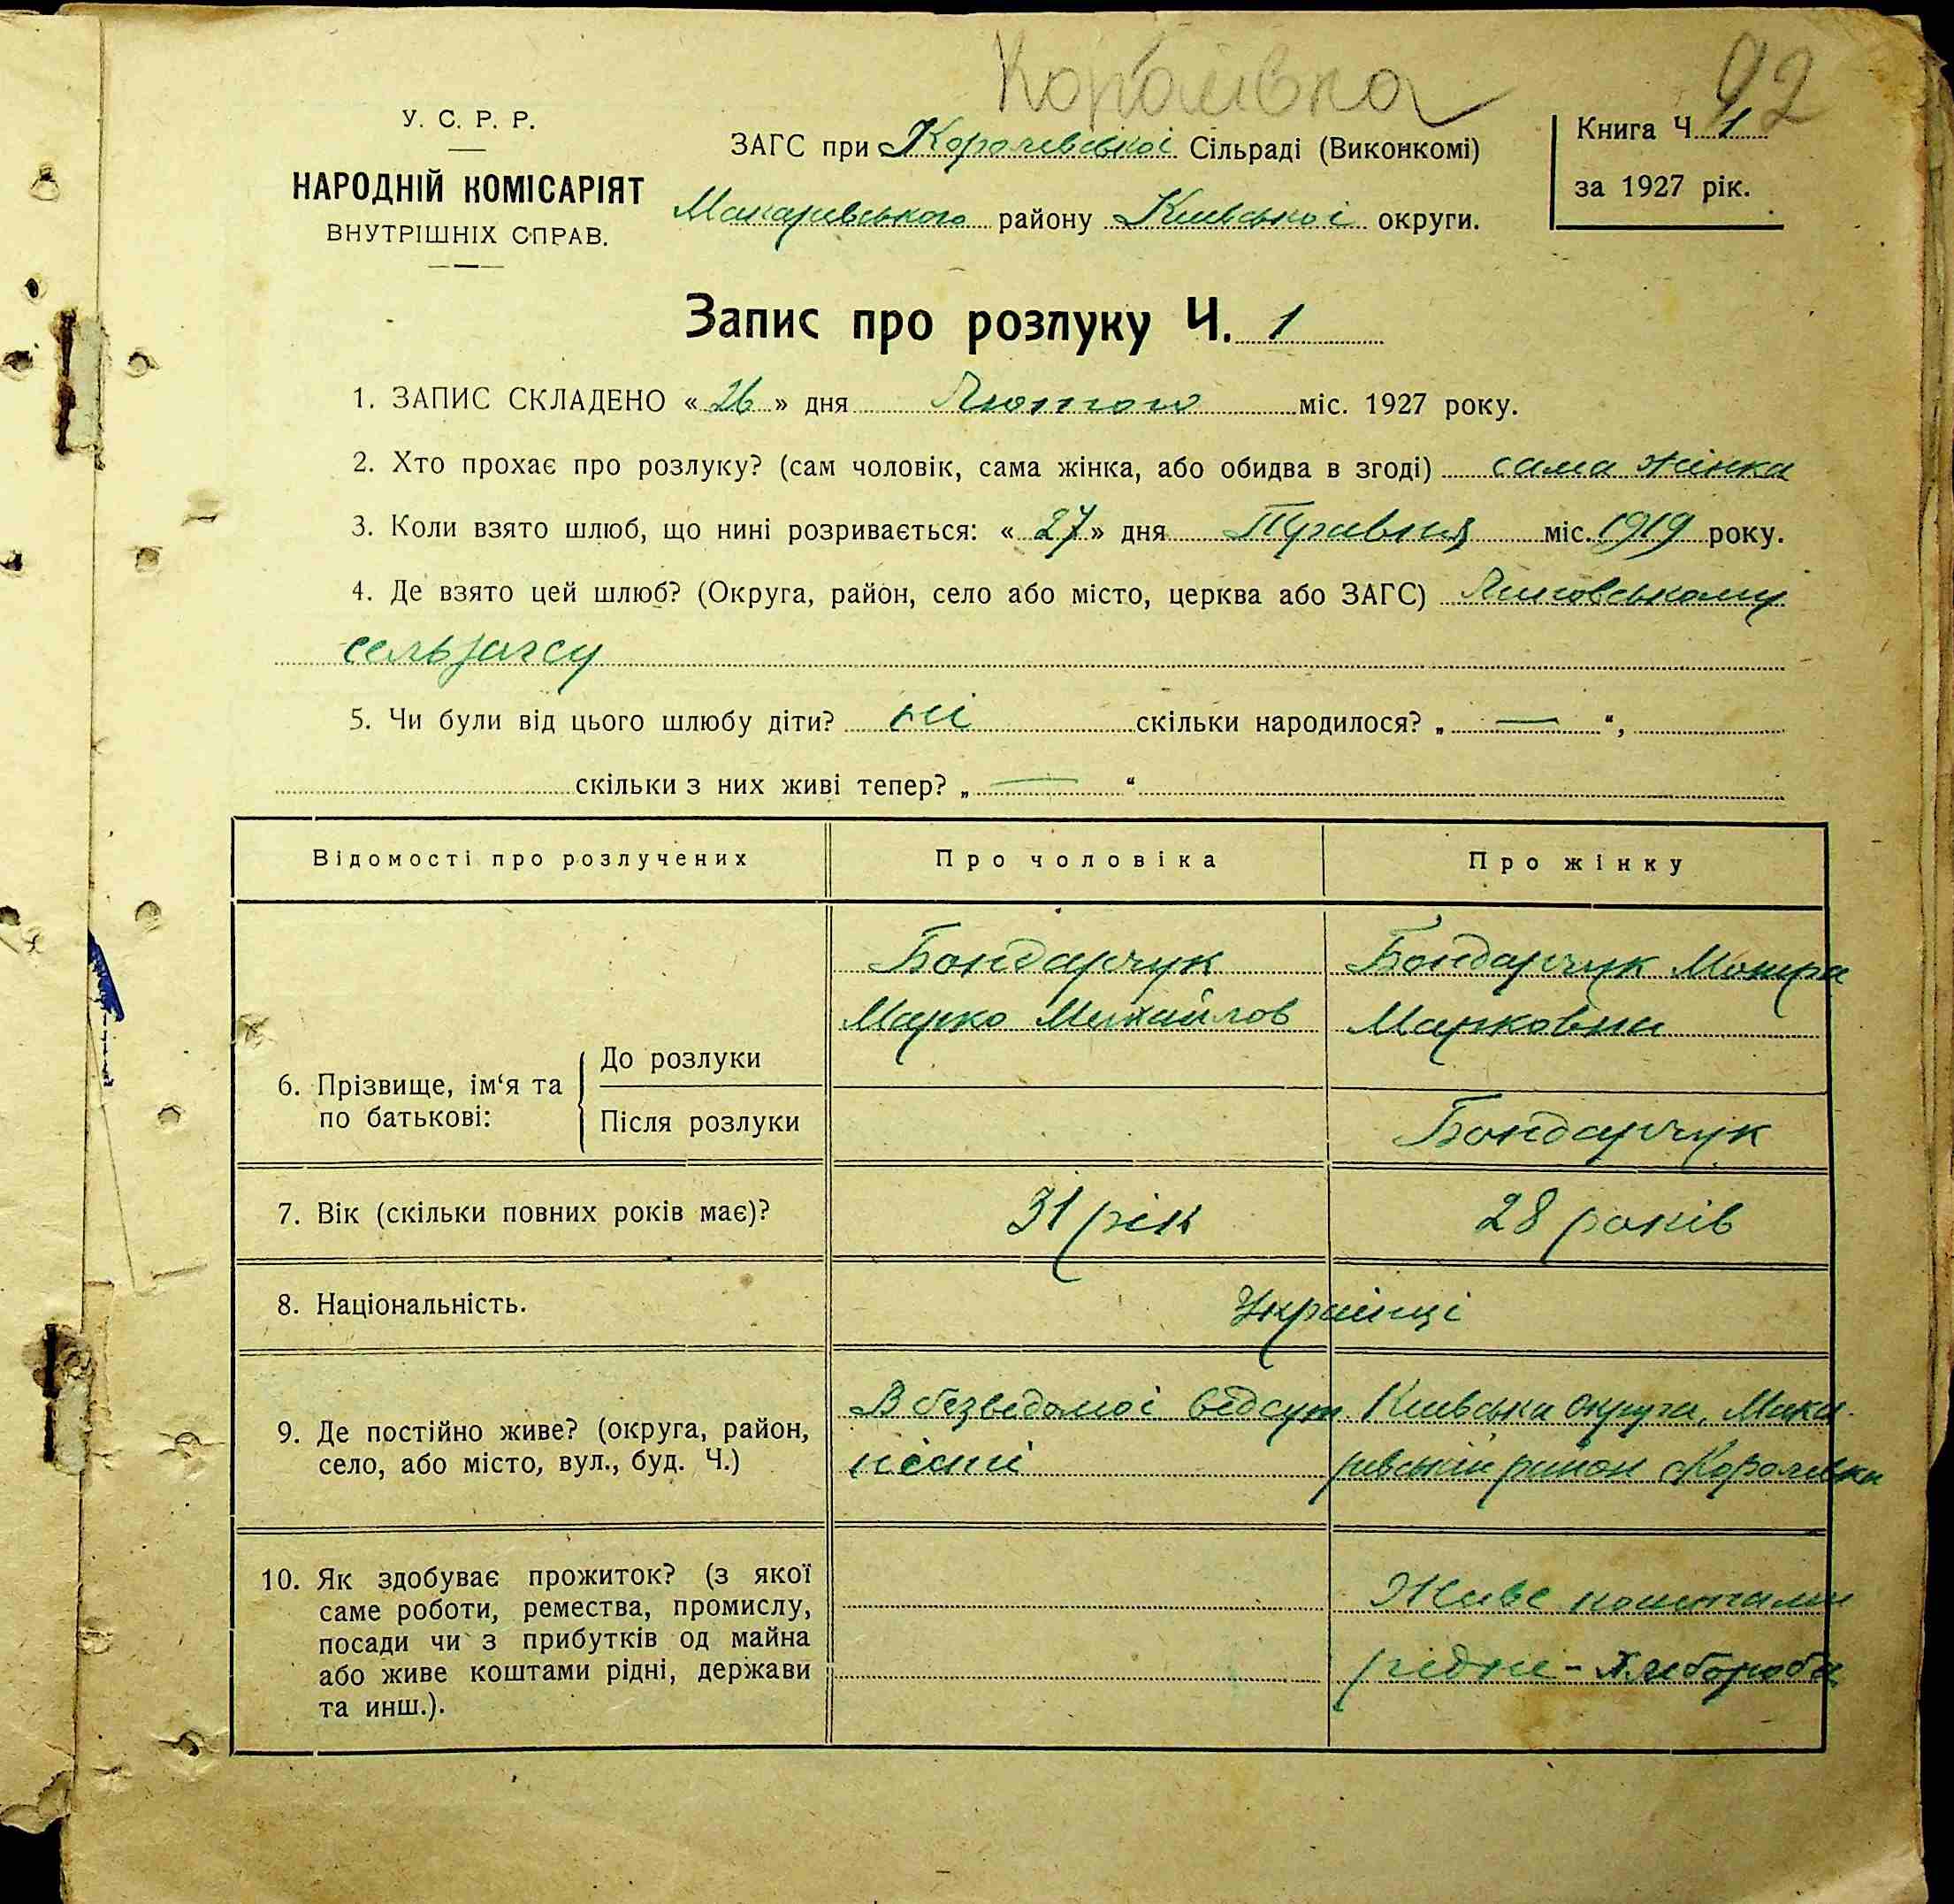 Королівка
92
У. С. Р. Р.
НАРОДНІЙ КОМІСАРІЯТ
ВНУТРІШНІХ СПРАВ.
ЗАГС при Королевської Сільраді (Виконкомі)
Макарівського району Київської округи.
Книга Ч 1
за 1927 рік.
Запис про розлуку Ч. 1
1. ЗАПИС СКЛАДЕНО « 26 » дня Лютого міс. 1927 року.
2. Хто прохає про розлуку? (сам чоловік, сама жінка, або обидва в згоді) сама жінка
3. Коли взято шлюб, що нині розривається: « 27 » дня Травня міс. 1919 року.
4. Де взято цей шлюб? (Округа, район, село або місто, церква або ЗАГС)
сельзагсу
5. Чи були від цього шлюбу діти? ні скільки народилося? „ — “,
скільки з них живі тепер? „ — “
Відомості про розлучених Про чоловіка Про жінку
Бондарчук Бондарчук
Марко Михайлов Марковна
6. Прізвище, ім‘я та по батькові:
До розлуки
Після розлуки Бондарчук
7. Вік (скільки повних років має)? 31 рік 28 років
8. Національність. Українці
9. Де постійно живе? (округа, район,
село, або місто, вул., буд. Ч.)
В безвідомої відсут
ності
Київська округа, Мака-
рівський район Королівка
10. Як здобуває прожиток? (з якої
саме роботи, ремества, промислу,
посади чи з прибутків од майна
або живе коштами рідні, держави
та инш.).
Живе коштами
рідні - хлібороба